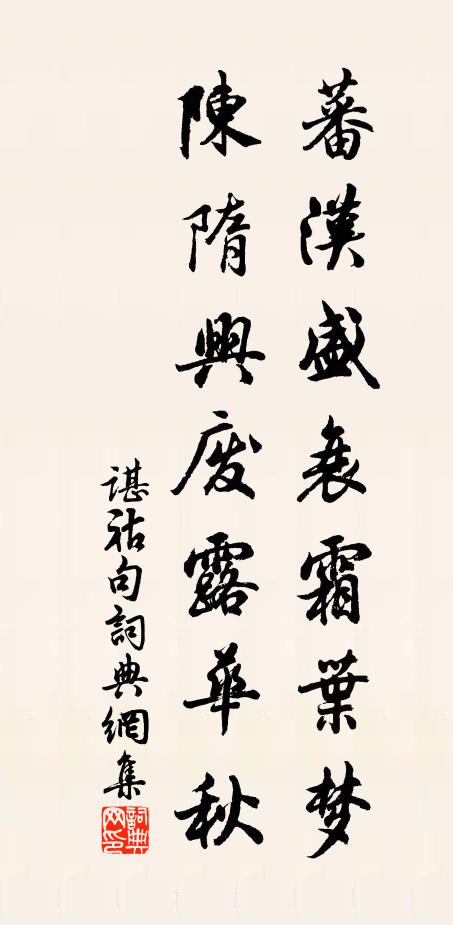 蕃漢盛衰霜葉梦
陳隋興废露華秋
諶祜句詞典網集
詞典
网印